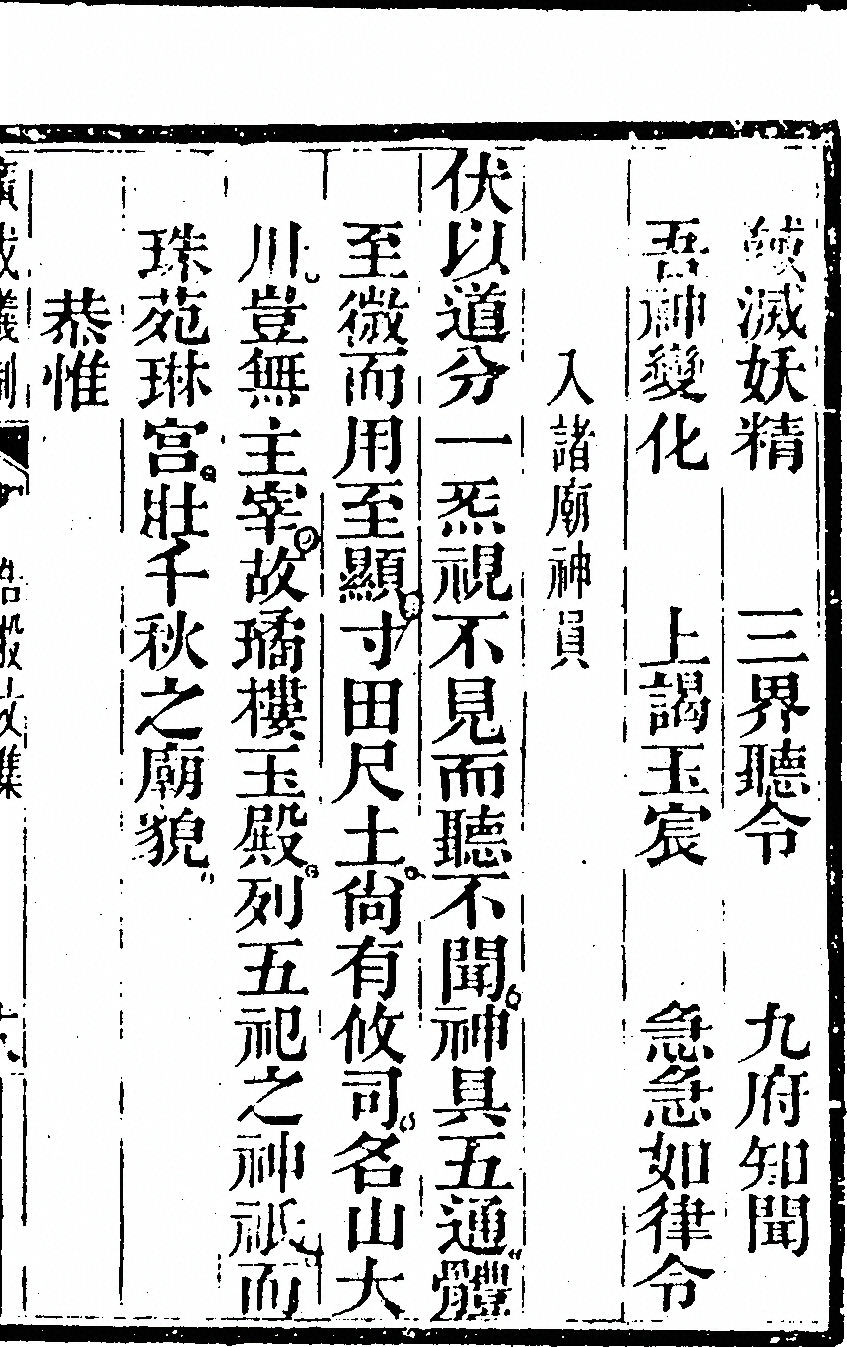 馘滅妖精　三界聽令　九府知聞
吾神變化　上謁玉宸　急急如律令
入諸廟神員
伏以道分一炁視不見而聽不聞神具五通體
至微而用至顯寸田尺土尙有攸司名山大
川豈無主宰故璚樓玉殿列五祀之神祇而
珠苑琳宮壯千秋之廟貌
恭惟
廣成儀制